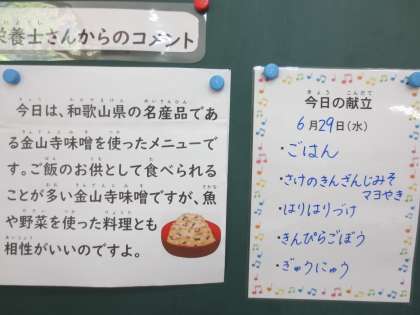 栄養士さんからのコメント
今日は、和歌山県の名産品であ
る金山寺味噌を使ったメニューで
す。ご飯のお供として食べられる
ことが多い金山寺味噌ですが、魚
や野菜を使った料理とも
相性がいいのですよ。
今日の献立
6月29日(水)
・ごはん
・さけのきんざんじみそ
マヨやき
・はりはりづけ
・きんぴらごぼう
・ぎゅうにゅう